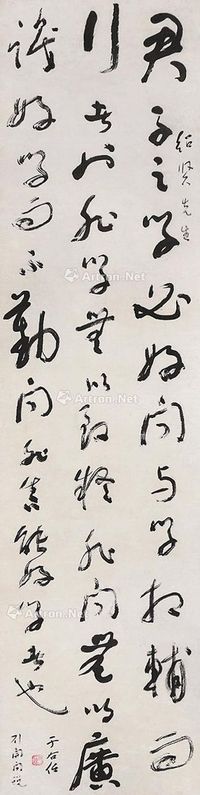 紹賢先生
君子之學必好問与學相輔而
行者也非學無以致疑非問無以廣
識好學而不勤問非真能好學者也
于右任
劉開問說
Artron.Net
Artron.Net
Artron.Net